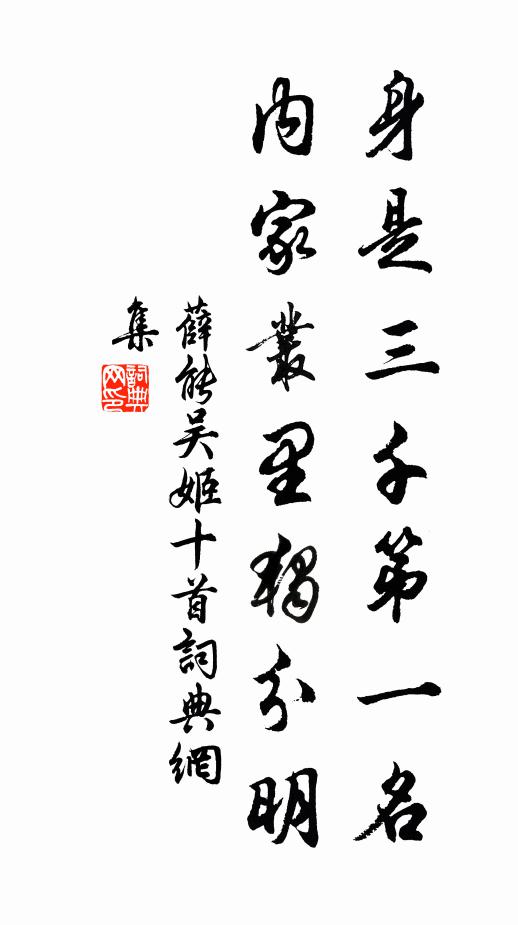 身是三千第一名
内家叢里獨分明
薛能吴姬十首詞典網
集
詞典网印